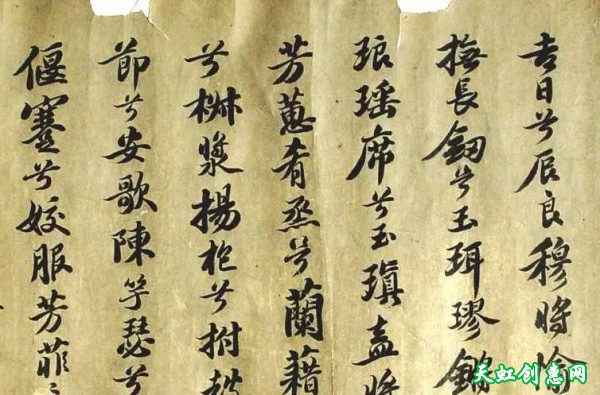 吉日兮辰良穆將愉
撫長釼兮玉珥璆鏘
琅瑶席兮玉瑱盍將
芳蕙肴烝兮蘭藉
兮椒漿揚枹兮拊
節兮安歌陳竽瑟兮
偃蹇兮姣服芳菲〻
天虹创惠网